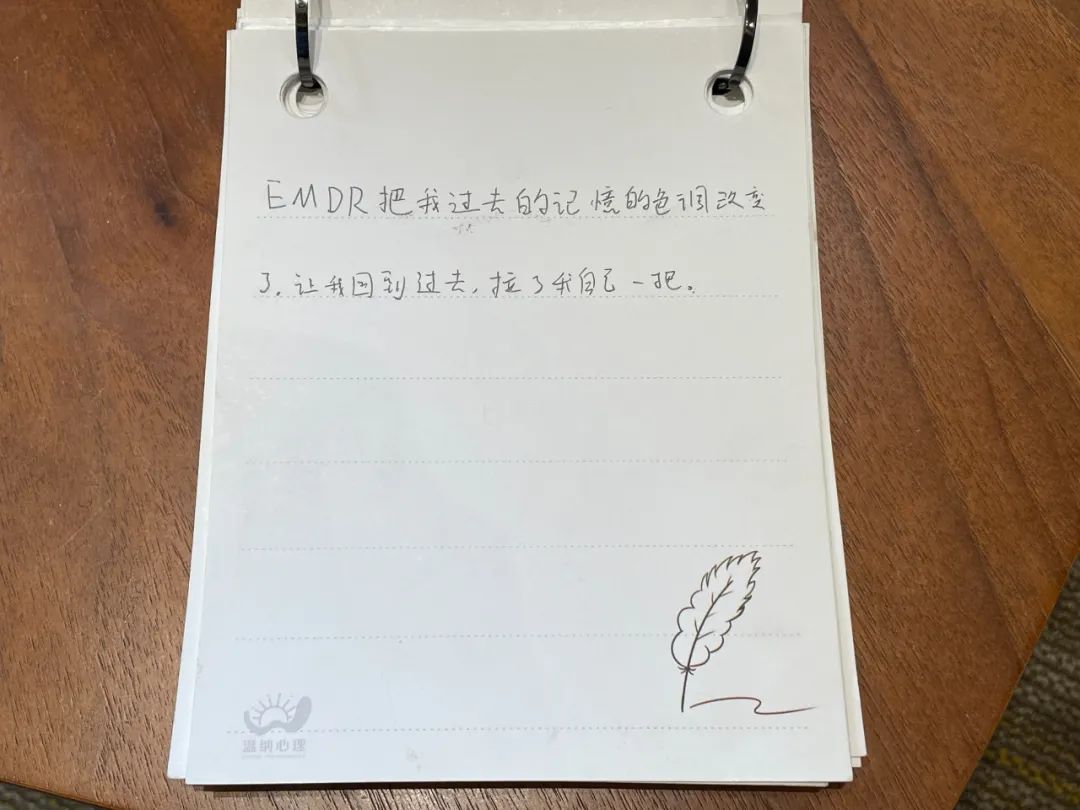 EMDR把我过去的记忆的色调改变
了.让我回到过去,拉了我自己一把。
温纳心理